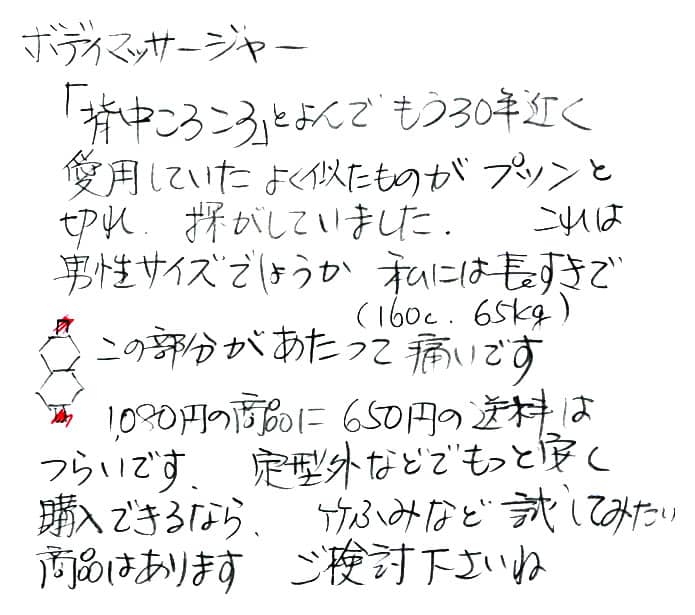 ボディマッサージャー
「背中ころころ」とよんで もう30年近く
愛用していた よく似たものが プツンと
切れ. 探がしていました. これは
男性サイズでしょうか 私には長すぎで
(160c. 65kg)
この部分があたって 痛いです
1,080円の商品に 650円の送料は
つらいです. 定型外などでもっと安く
購入できるなら、 竹ふみなど 試してみたい
商品はあります ご検討下さいね